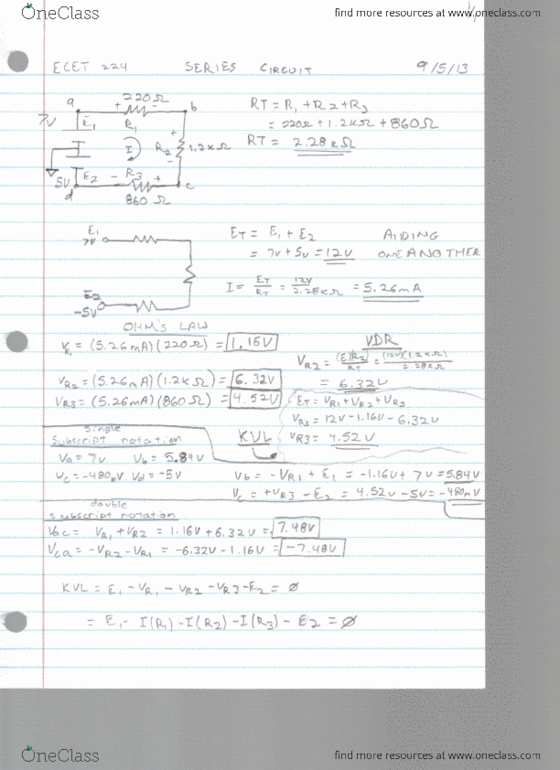 OneClass
find more resources at www.oneclass.com
ECET 224 SERIES CIRCUIT 9/5/13
a + 220Ω - b
7V E1 R1
I R2 1.2KΩ
5V E2 - R3 + c
d 860Ω
RT = R1 + R2 + R3
= 220Ω + 1.2KΩ + 860Ω
RT = 2.28KΩ
E1
7V
E2
-5V
ET = E1 + E2 AIDING
= 7V + 5V = 12V ONE ANOTHER
I = ET/RT = 12V/2.28KΩ = 5.26mA
OHM'S LAW
V1 = (5.26mA)(220Ω) = 1.16V
VR2 = (5.26mA)(1.2KΩ) = 6.32V
VR3 = (5.26mA)(860Ω) = 4.52V
VDR
VR2 = (E)(R2)/RT = (12V)(1.2KΩ)/2.28KΩ
= 6.32V
KVL
ET = VR1 + VR2 + VR3
VR3 = 12V - 1.16V - 6.32V
VR3 = 4.52V
Single
Subscript notation
Va = 7V Vb = 5.84V
Vc = -480mV Vd = -5V
Vb = -VR1 + E1 = -1.16V + 7V = 5.84V
Vc = +VR3 - E2 = 4.52V - 5V = -480mV
double
subscript notation
VR1 + VR2 = 1.16V + 6.32V = 7.48V
Vca = -VR2 - VR1 = -6.32V - 1.16V = -7.48V
KVL = E1 - VR1 - VR2 - VR3 - E2 = Ø
= E1 - I(R1) - I(R2) - I(R3) - E2 = Ø
OneClass
find more resources at www.oneclass.com